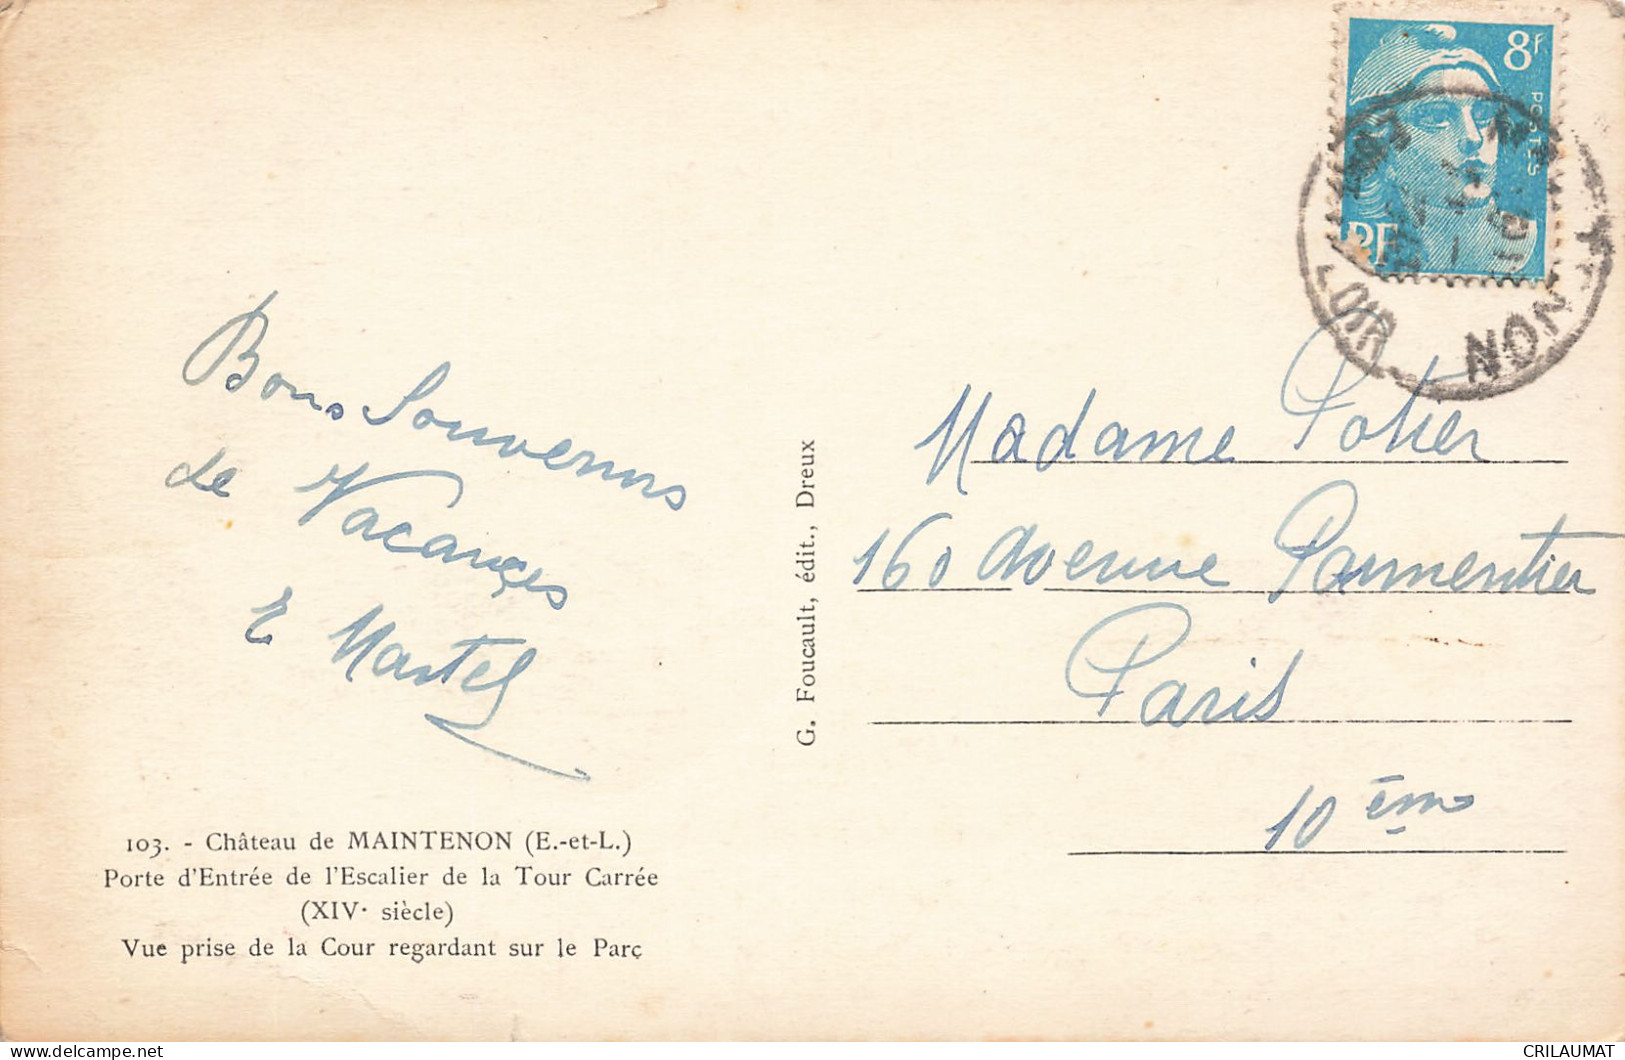 8f
POSTES
RF
LOIR
NON
Bons Souvenirs
de Vacances
E Martel
Madame Potier
160 Avenue Parmentier
Paris
10 ème
G. Foucault, édit., Dreux
103. - Château de MAINTENON (E.-et-L.)
Porte d'Entrée de l'Escalier de la Tour Carrée
(XIVe siècle)
Vue prise de la Cour regardant sur le Parc
CRILAUMAT